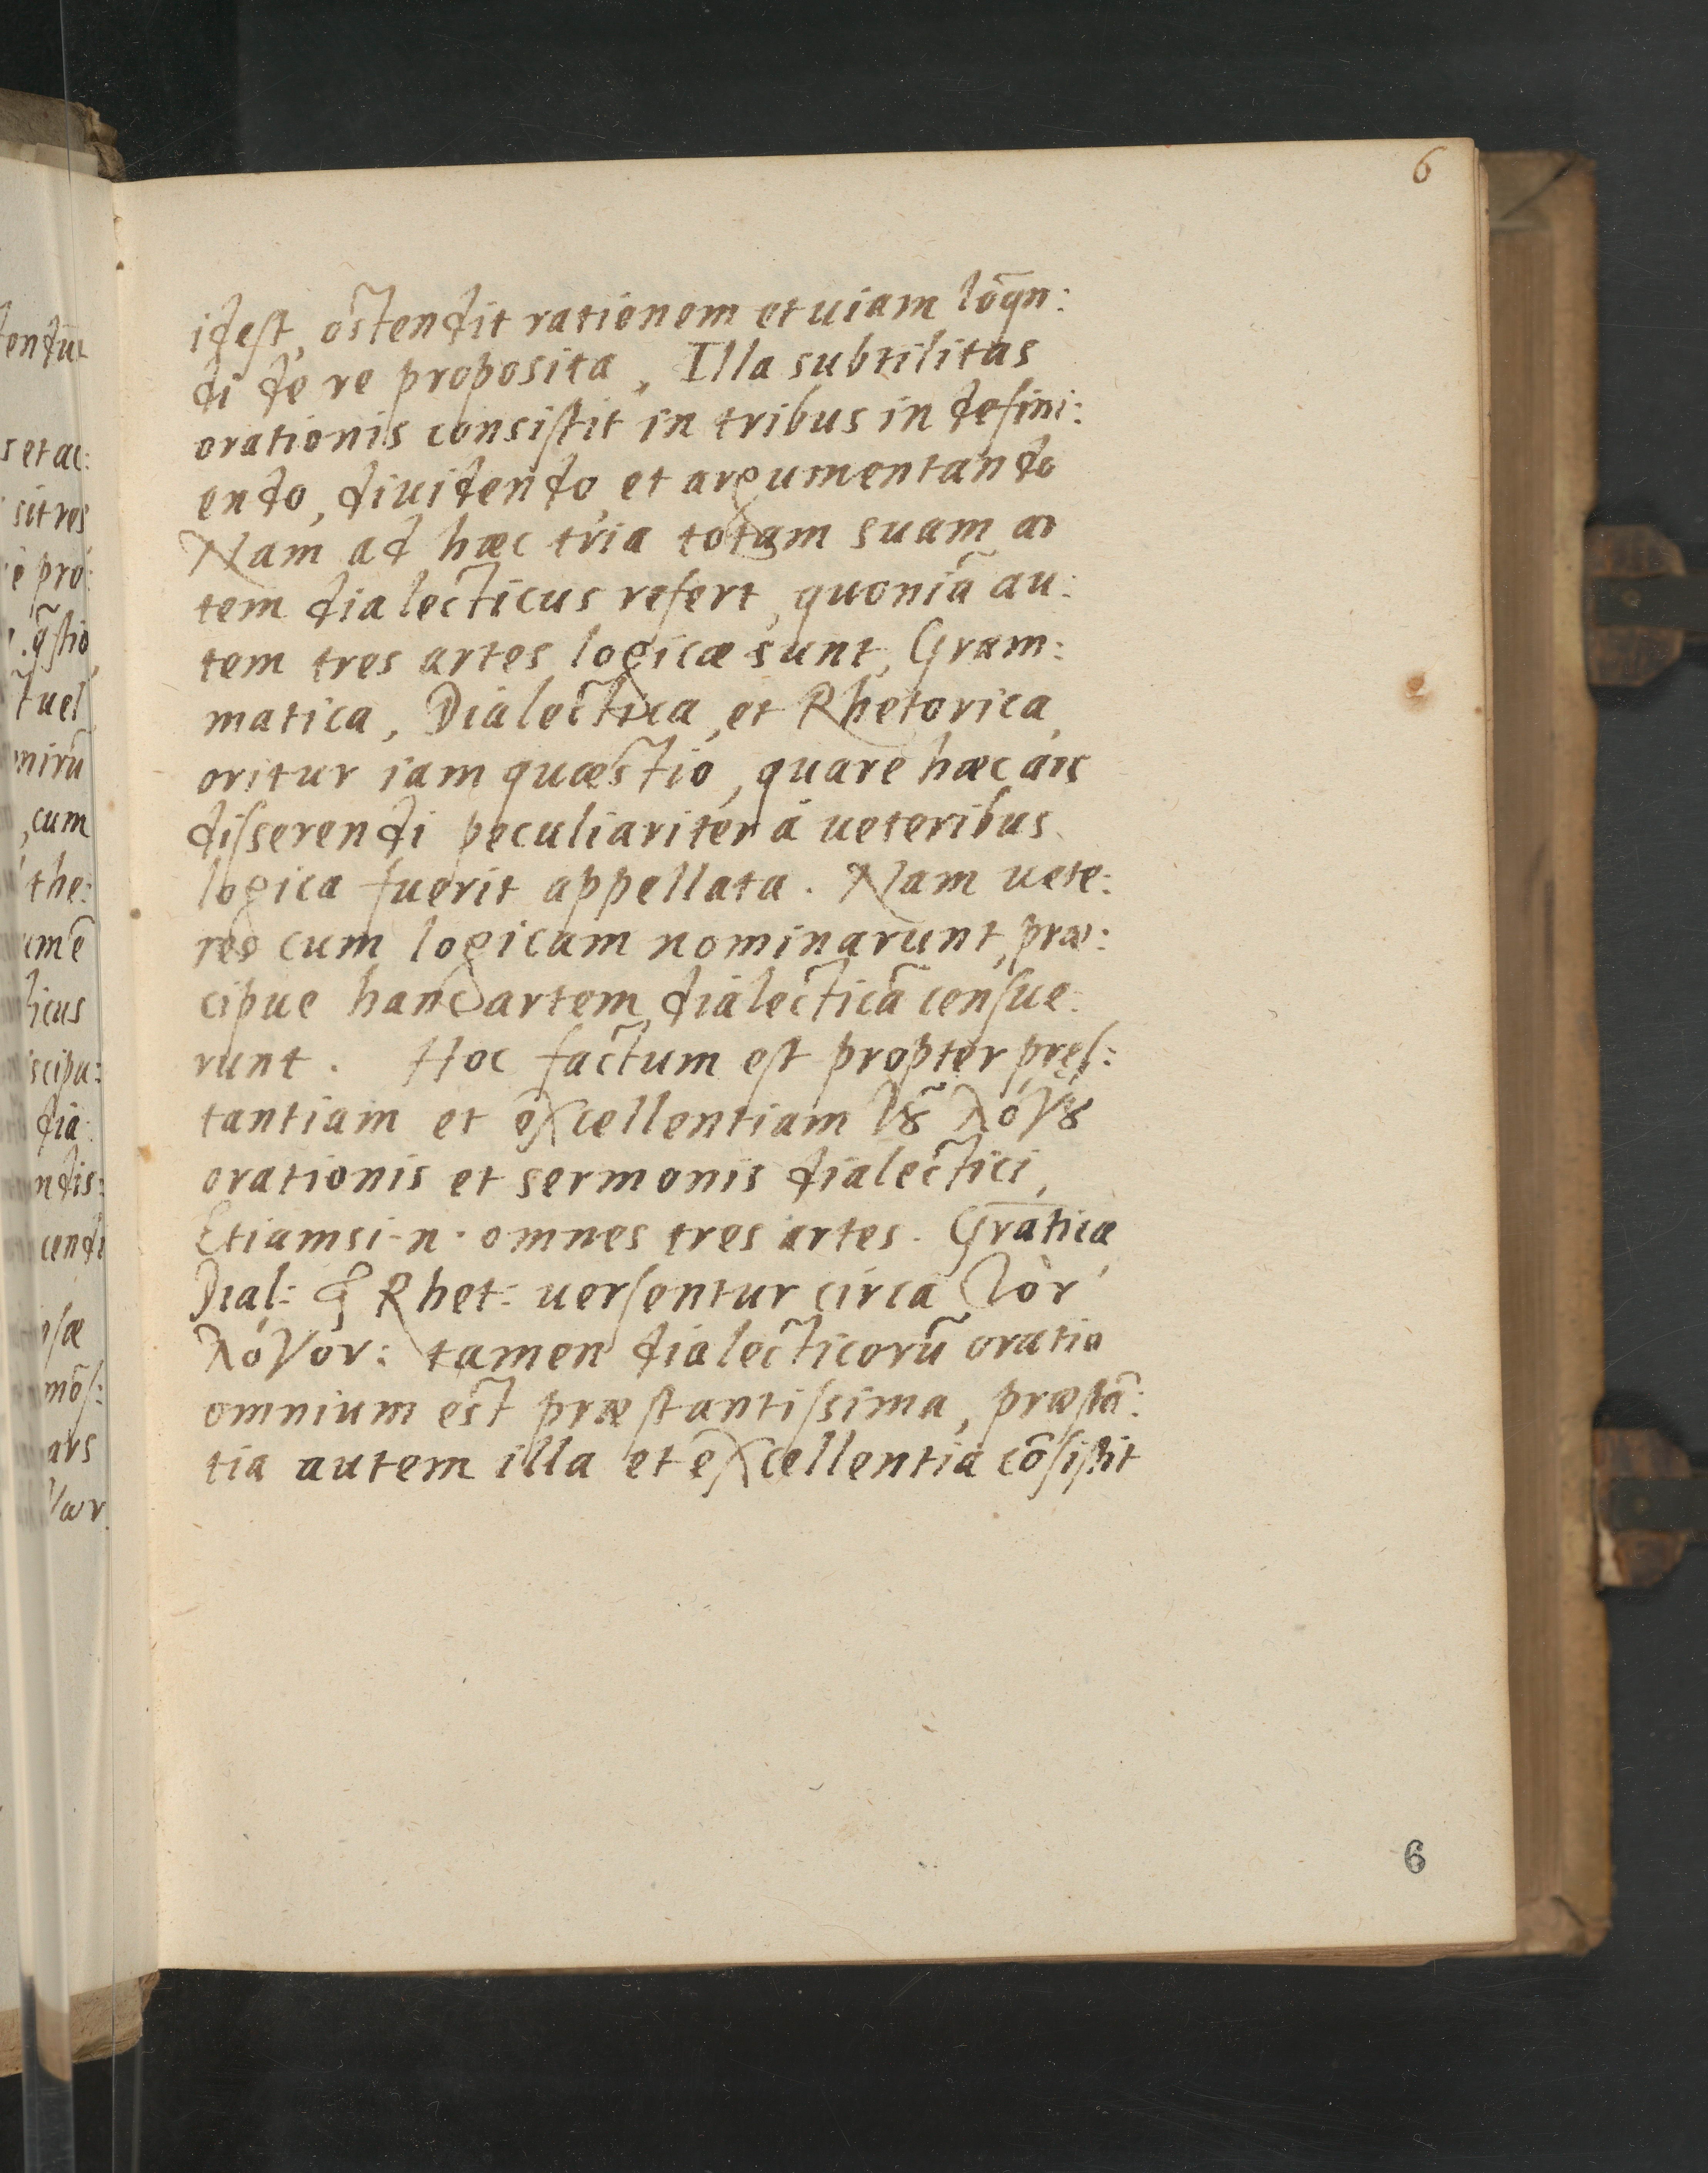 6
idest, ostendit rationem et uiam lōqn:
di de re proposita, Illa subtilitas
orationis consistit in tribus in defini:
endo, diuidendo, et argumentando
Nam ad hæc tria totam suam ar
tem dialecticus refert, quoniā au:
tem tres artes logicæ sunt, Gram:
matica, Dialectica, et Rhetorica,
oritur iam quæstio, quare hæc ars
disserendi peculiariter á ueteribus
logica fuerit appellata. Nam uete:
res cum logicam nominarunt, præ:
cipue hanc artem dialecticā censue:
runt. Hoc factum est propter pręs:
tantiam et excellentiam τȣ͂ λόγȣ
orationis et sermonis dialectici,
Etiamsi .n. omnes tres artes. Gratica
Dial: & Rhet: uersentur circa τὸν
λόγον: tamen dialecticorū oratio
omnium est præstantissima, præstā:
tia autem illa et excellentia cōsistit
6
endūt
s et ac:
sit res
è pro:
q̄stio,
t uel
mirū
, cum
the:
umē
ticus
scipu:
dia:
ndis:
cendi
psæ
mōs:
ars
γων